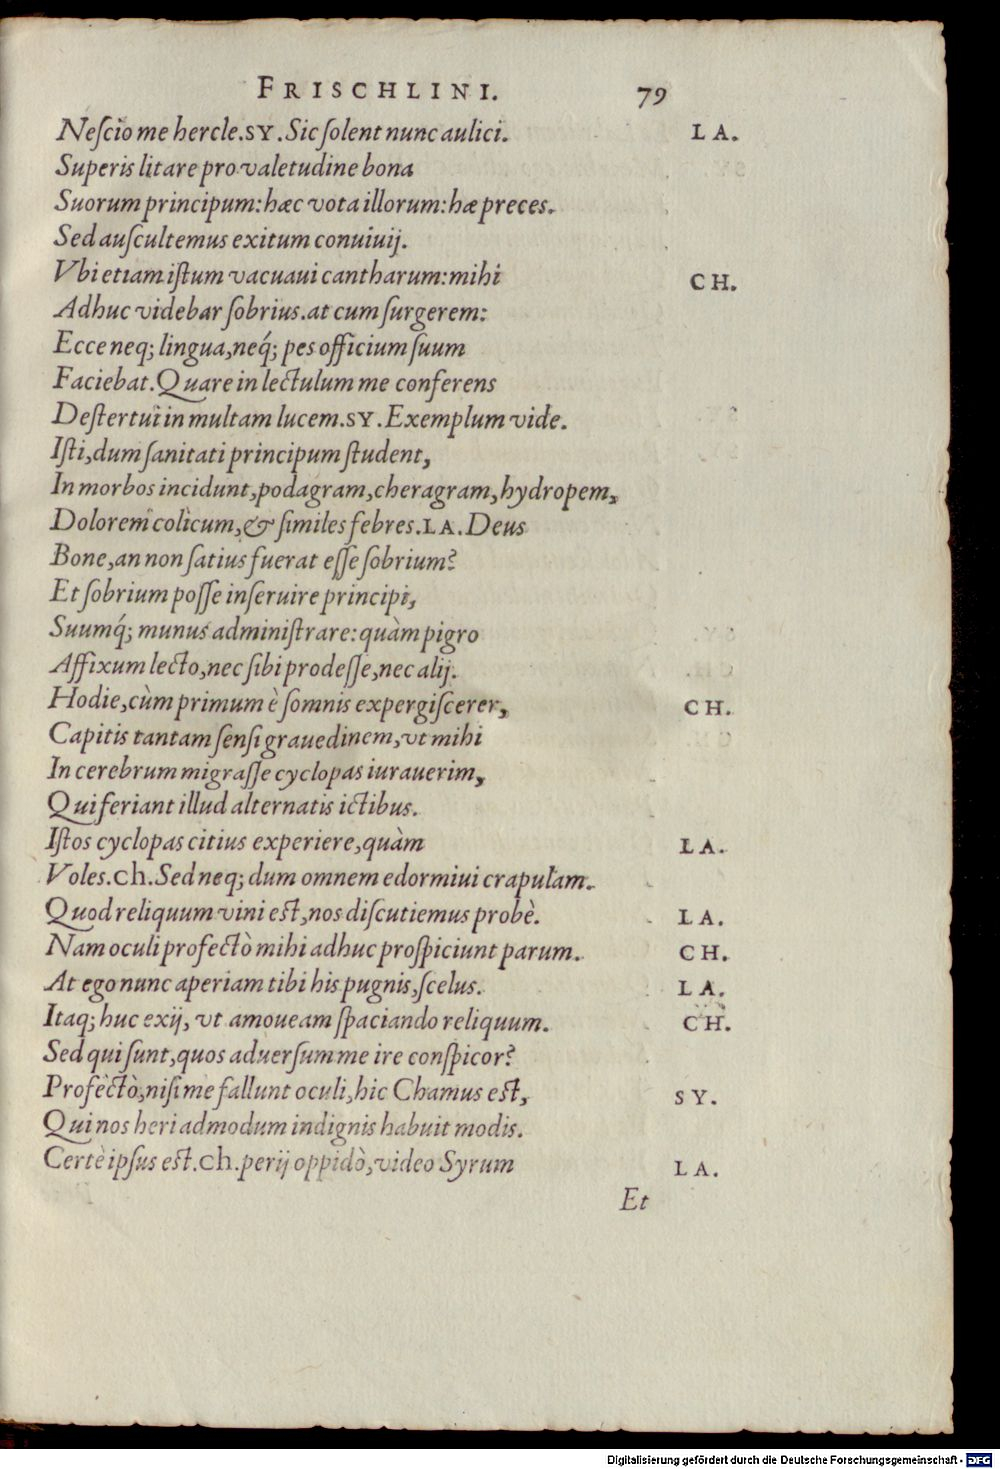 FRISCHLINI. 79
Neſcio me hercle. SY. Sic ſolent nunc aulici. LA.
Superis litare pro valetudine bona
Suorum principum: hæc vota illorum: hæ preces.
Sed auſcultemus exitum conuiuij.
Vbi etiam iſtum vacuaui cantharum: mihi CH.
Adhuc videbar ſobrius. at cum ſurgerem:
Ecce neq; lingua, neq́; pes officium ſuum
Faciebat. Quare in lectulum me conferens
Deſtertui in multam lucem. SY. Exemplum vide.
Iſti, dum ſanitati principum ſtudent,
In morbos incidunt, podagram, cheragram, hydropem,
Dolorem colicum, & ſimiles febres. LA. Deus
Bone, an non ſatius fuerat eſſe ſobrium?
Et ſobrium poſſe inſeruire principi,
Suumq́; munus adminiſtrare: quàm pigro
Affixum lecto, nec ſibi prodeſſe, nec alij.
Hodie, cùm primum è ſomnis expergiſcerer, CH.
Capitis tantam ſenſi grauedinem, vt mihi
In cerebrum migraſſe cyclopas iurauerim,
Qui feriant illud alternatis ictibus.
Iſtos cyclopas citius experiere, quàm LA.
Voles. Ch. Sed neq; dum omnem edormiui crapulam.
Quod reliquum vini est, nos diſcutiemus probè. LA.
Nam oculi profectò mihi adhuc proſpiciunt parum. CH.
At ego nunc aperiam tibi his pugnis, ſcelus. LA.
Itaq; huc exij, vt amoueam ſpaciando reliquum. CH.
Sed qui ſunt, quos aduerſum me ire conſpicor?
Profectò, niſi me fallunt oculi, hic Chamus est, SY.
Qui nos heri admodum indignis habuit modis.
Certè ipſus est. Ch. perij oppidò, video Syrum LA.
Et
Digitalisierung gefördert durch die Deutsche Forschungsgemeinschaft - DFG